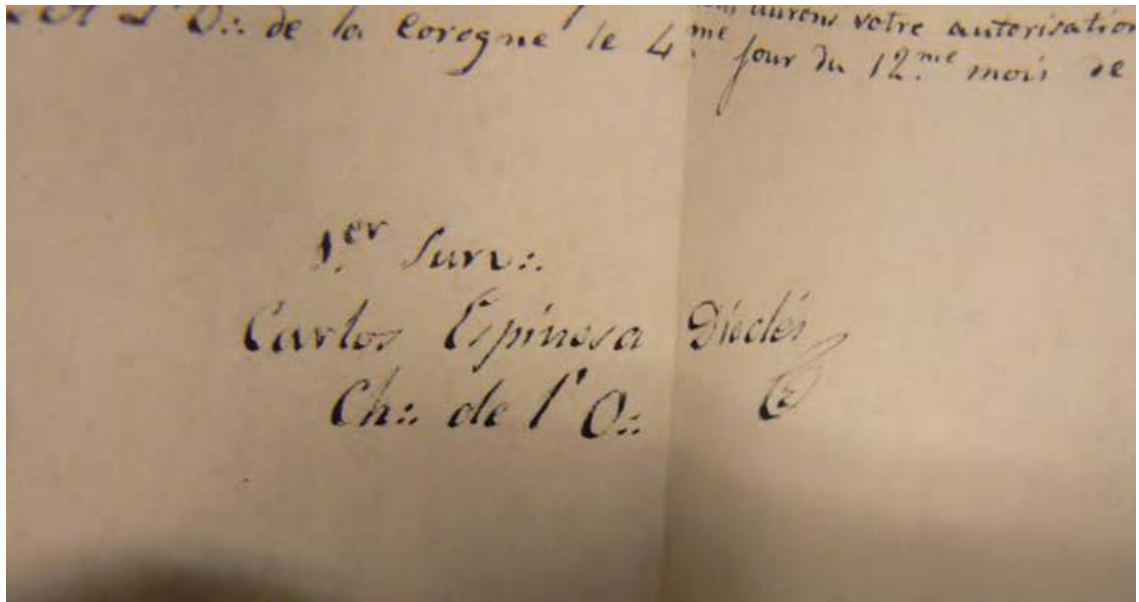 aurons votre autorisation
A L'O∴ de la Corogne le 4.me jour du 12.me mois de
1.er Surv∴
Carlos Espinosa Dioclés
Ch∴ de l'O∴